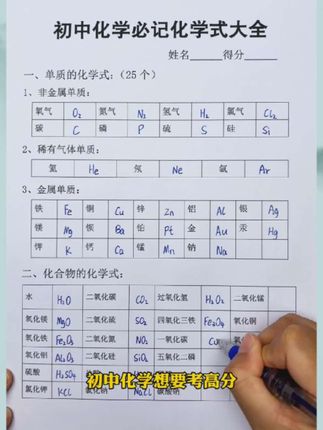 初中化学必记化学式大全
姓名____得分____
一、单质的化学式：（25 个）
1、非金属单质：
氧气 O₂ 氮气 N₂ 氢气 H₂ 氯气 Cl₂
碳 C 磷 P 硫 S 硅 Si
2、稀有气体单质：
氦 He 氖 Ne 氩 Ar
3、金属单质：
铁 Fe 铜 Cu 锌 Zn 铝 Al 银 Ag
镁 Mg 钡 Ba 铂 Pt 金 Au 汞 Hg
钾 K 钙 Ca 锰 Mn 钠 Na
二、化合物的化学式：
水 H₂O 二氧化碳 CO₂ 过氧化氢 H₂O₂ 二氧化锰
氧化镁 MgO 二氧化硫 SO₂ 四氧化三铁 Fe₃O₄ 氧化铜
氧化铁 Fe₂O₃ 二氧化氮 NO₂ 一氧化碳
氧化铝 Al₂O₃ 二氧化硅 SiO₂ 五氧化二磷
硫酸 H₂SO₄
氯化钾 KCl 碳酸钠
初中化学想要考高分